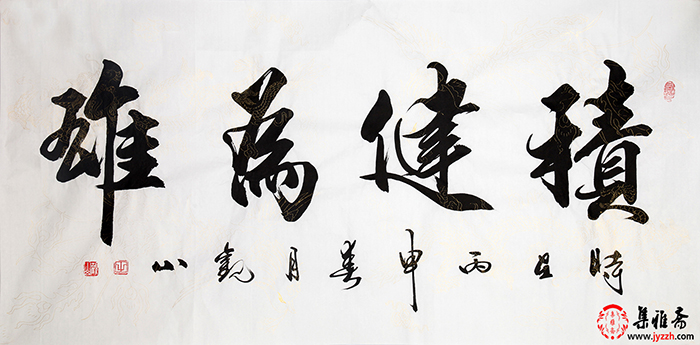 積健為雄
時在丙申春月觀山
集雅斋
www.jyzzh.com